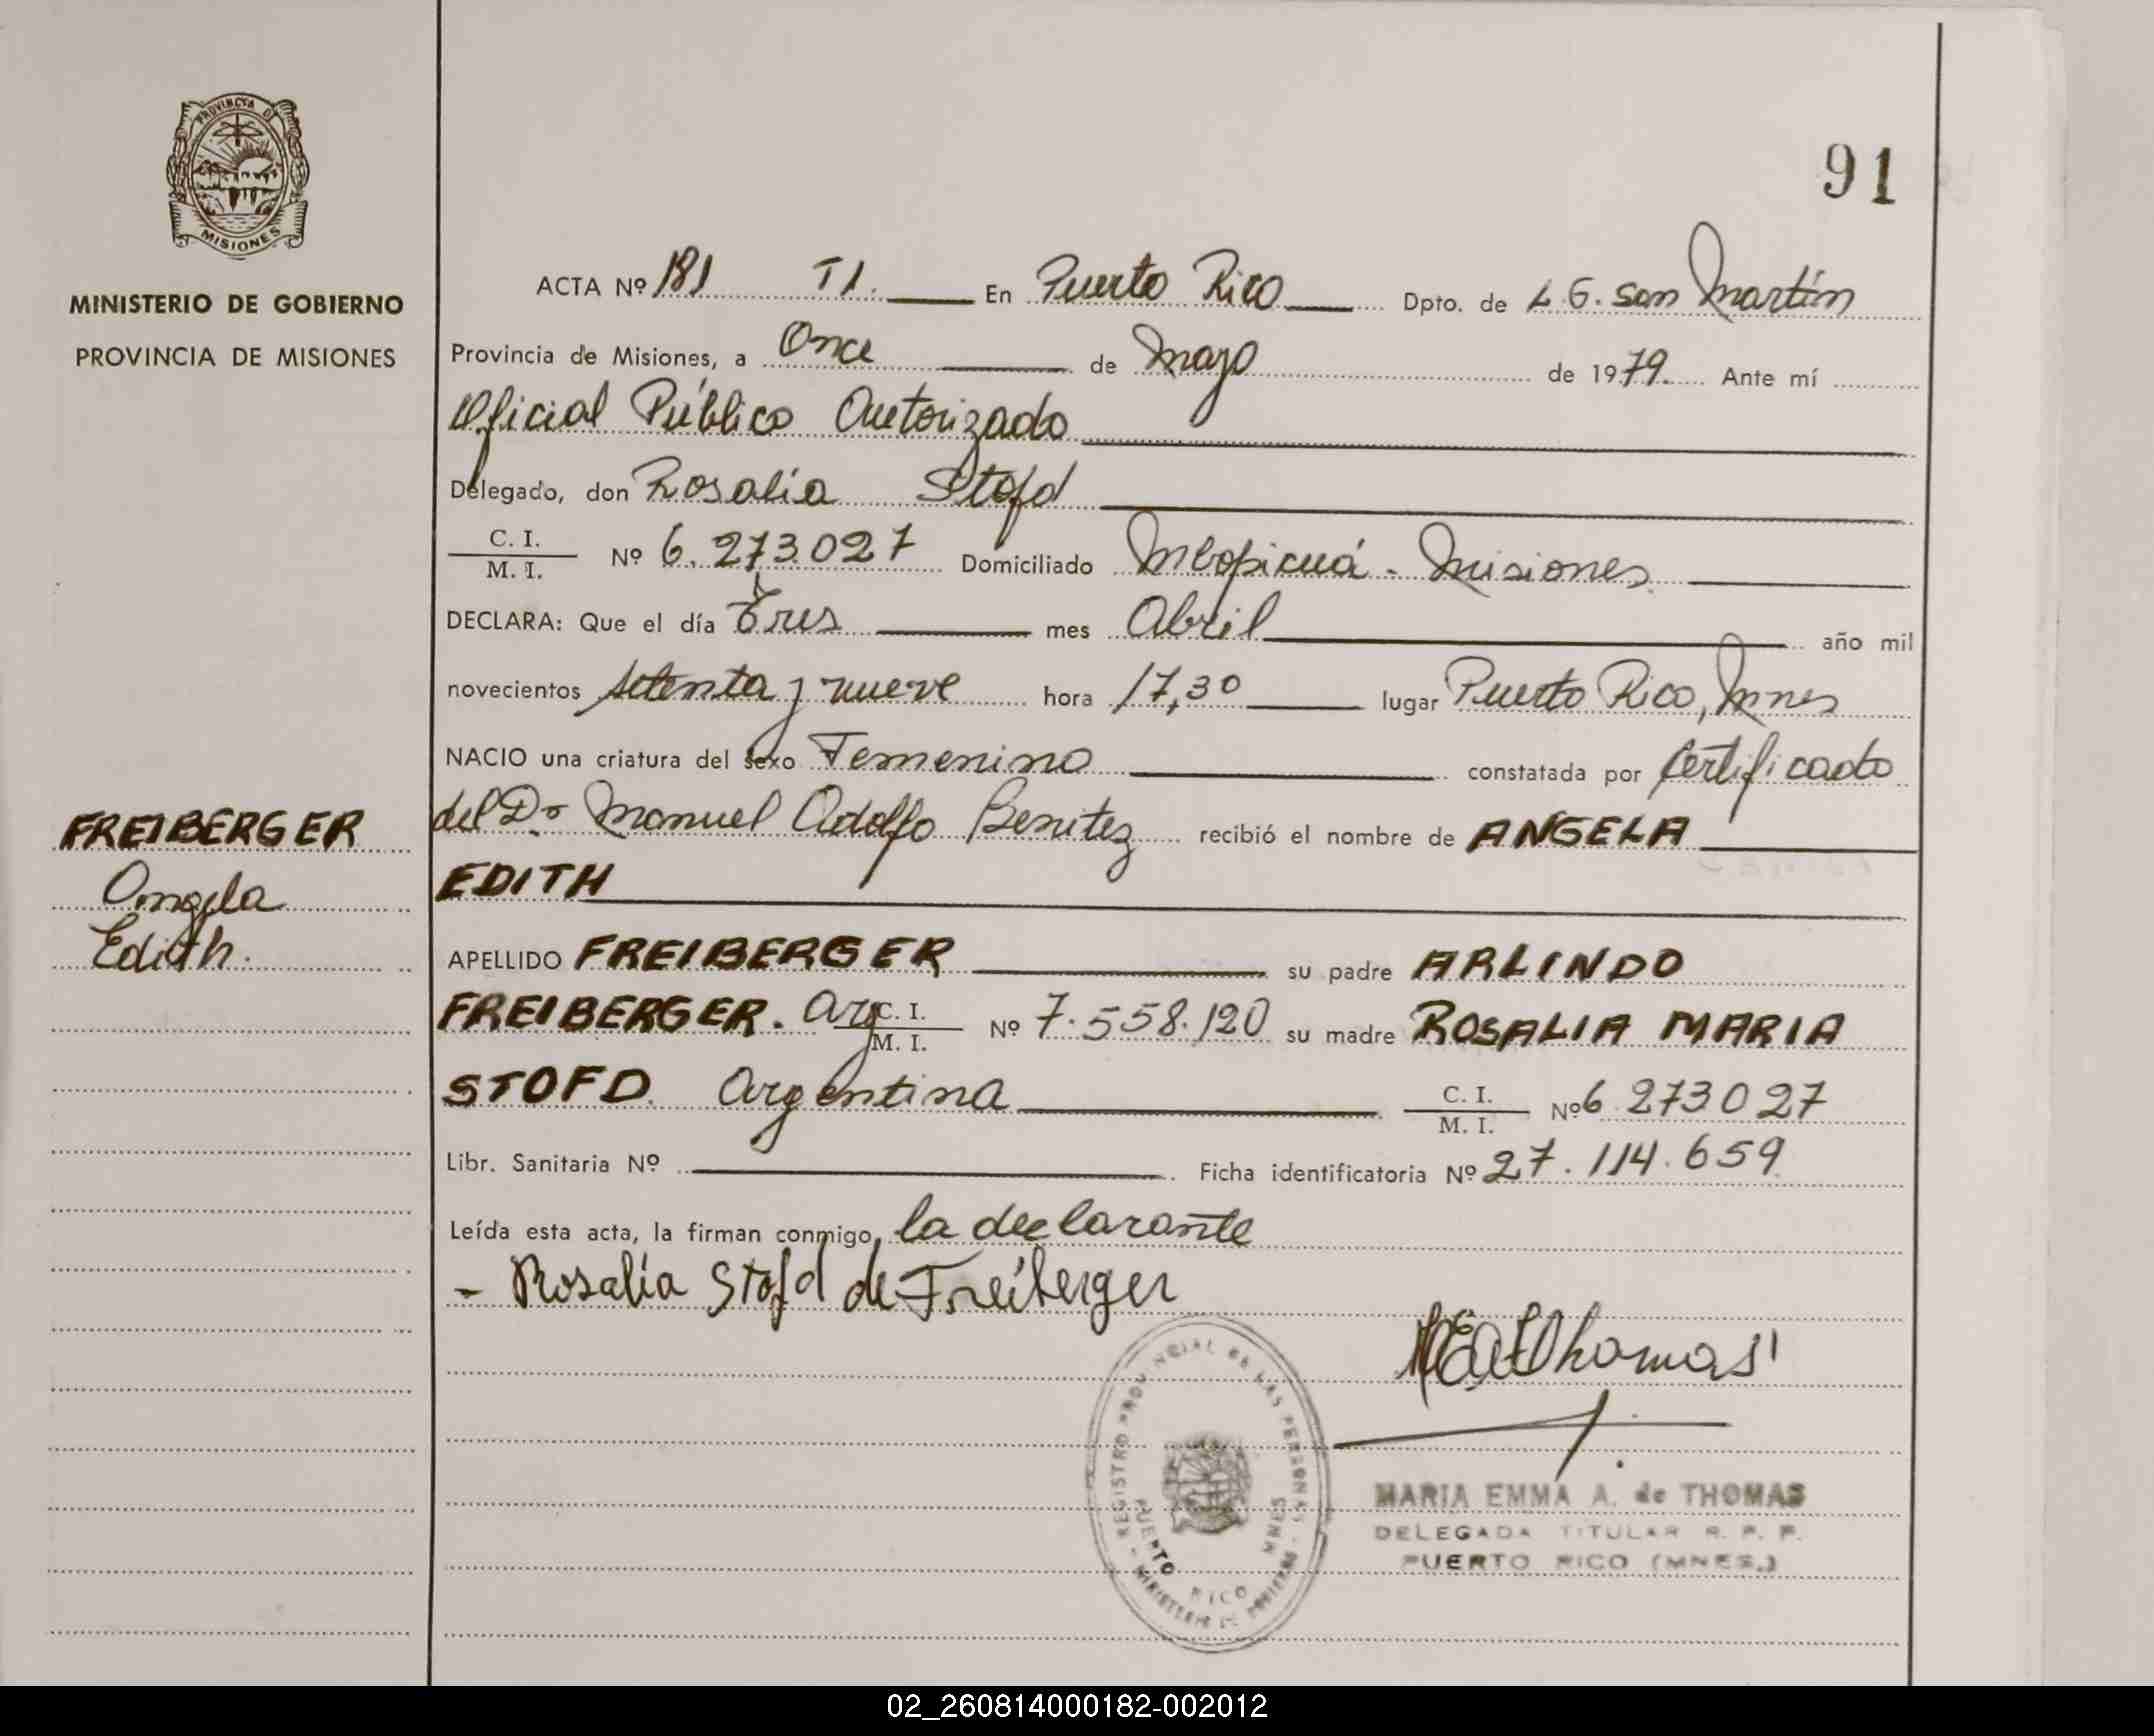 91
PROVINCIA DE
MISIONES
MINISTERIO DE GOBIERNO
PROVINCIA DE MISIONES
FREIBERGER
Angela
Edith.
ACTA Nº 181 T1. En Puerto Rico Dpto. de L. G. San Martín
Provincia de Misiones, a Once de Mayo de 1979. Ante mí
Oficial Público Autorizado
Delegado, don Rosalía Stofd
C. I.
M. I. Nº 6.273.027 Domiciliado Mbopicuá - Misiones
DECLARA: Que el día Tres mes Abril año mil
novecientos setenta y nueve hora 17,30 lugar Puerto Rico, Mnes
NACIO una criatura del sexo Femenino constatada por Certificado
del Dr Manuel Adolfo Benitez recibió el nombre de ANGELA
EDITH
APELLIDO FREIBERGER su padre ARLINDO
FREIBERGER. Arg C. I.
M. I. Nº 7.558.120 su madre ROSALIA MARIA
STOFD. Argentina C. I.
M. I. Nº 6 273027
Libr. Sanitaria Nº Ficha identificatoria Nº 27.114.659
Leída esta acta, la firman conmigo, la declarante
- Rosalía Stofd de Freiberger
MEA de Thomas
REGISTRO PROVINCIAL DE LAS PERSONAS
PUERTO RICO MNES
MINISTERIO DE GOBIERNO
MARIA EMMA A. de THOMAS
DELEGADA TITULAR R. P. P.
PUERTO RICO (MNES.)
02_260814000182-002012